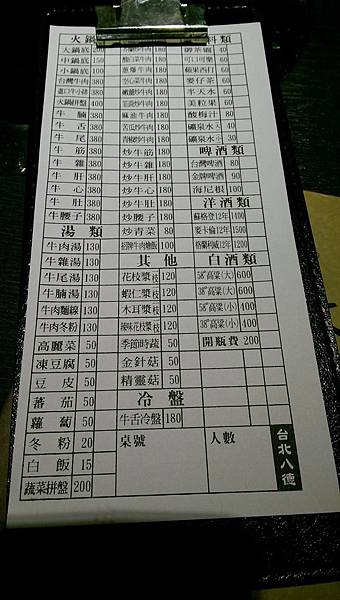 火鍋
大鍋底 200
中鍋底 150
小鍋底 100
台灣牛肉 380
火鍋拼盤 400
牛腩 380
牛舌 380
牛尾 380
牛筋 380
牛雜 380
牛肝 380
牛心 380
牛肚 380
牛腰子 380
湯類
牛肉湯 130
牛雜湯 130
牛尾湯 130
牛腩湯 130
牛肉麵線 130
牛肉冬粉 130
高麗菜 50
凍豆腐 50
豆皮 50
蕃茄 50
蘿蔔 50
冬粉 20
白飯 15
蔬菜拼盤 200
牛肉 180
酸白菜牛肉 180
蔥爆牛肉 180
空心菜牛肉 180
嫩薑炒牛肉 180
韮黃炒牛肉 180
麻油牛肉 180
苦瓜炒牛肉 180
青椒炒牛肉 180
炒牛筋 180
炒牛雜 180
炒牛肝 180
炒牛心 180
炒牛肚 180
炒腰子 180
炒青菜 80
招牌牛肉燴飯 100
其他
花枝漿 120
蝦仁漿 120
木耳漿 120
辣味花枝漿 120
季節時蔬 50
金針菇 50
精靈菇 50
冷盤
牛舌冷盤 180
桌號
料類
御茶園 40
可口可樂 60
蘋果西打 60
麥仔茶 60
半天水 60
美粒果 60
酸梅汁 80
礦泉水 大 40
礦泉水 小 30
啤酒類
台灣啤酒 80
金牌啤酒 90
海尼根 100
洋酒類
蘇格登12年 1400
麥卡倫12年 1500
格蘭利威12年 1200
白酒類
58°高粱(大) 600
38°高粱(大) 600
58°高粱(小) 400
38°高粱(小) 400
開瓶費 200
人數
台北八德